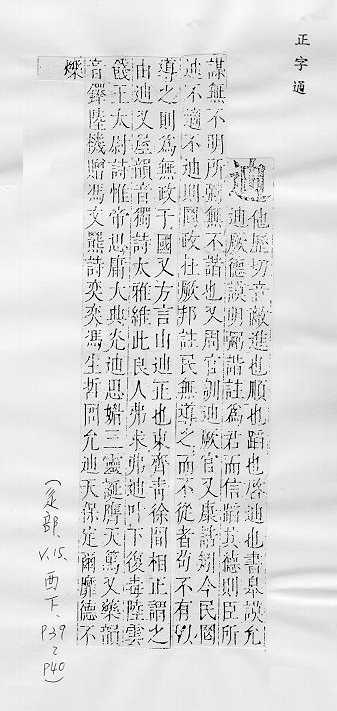 正字通
他歷切音敵進也順也蹈也啓迪也書皐謨允
迪厥德謨明弼諧註為君而信蹈其德則臣所
謀無不明所弼無不諧也又周官訓迪厥官又康誥矧今民罔
迪不適不迪則罔政在厥邦註民無導之而不從者苟不有以
導之則為無政于國又方言由迪正也東齊青徐間相正謂之
由迪又屋韻音獨詩大雅維此良人弗求弗迪叶下復毒陸雲
餞王太尉詩惟帝思庸大典光迪思媚三靈誕膺天篤又藥韻
音鐸陸機贈馮文羆詩奕奕馮生哲問允迪天保定爾靡德不
爍
(辵部、V.15.酉下、P39~P40)